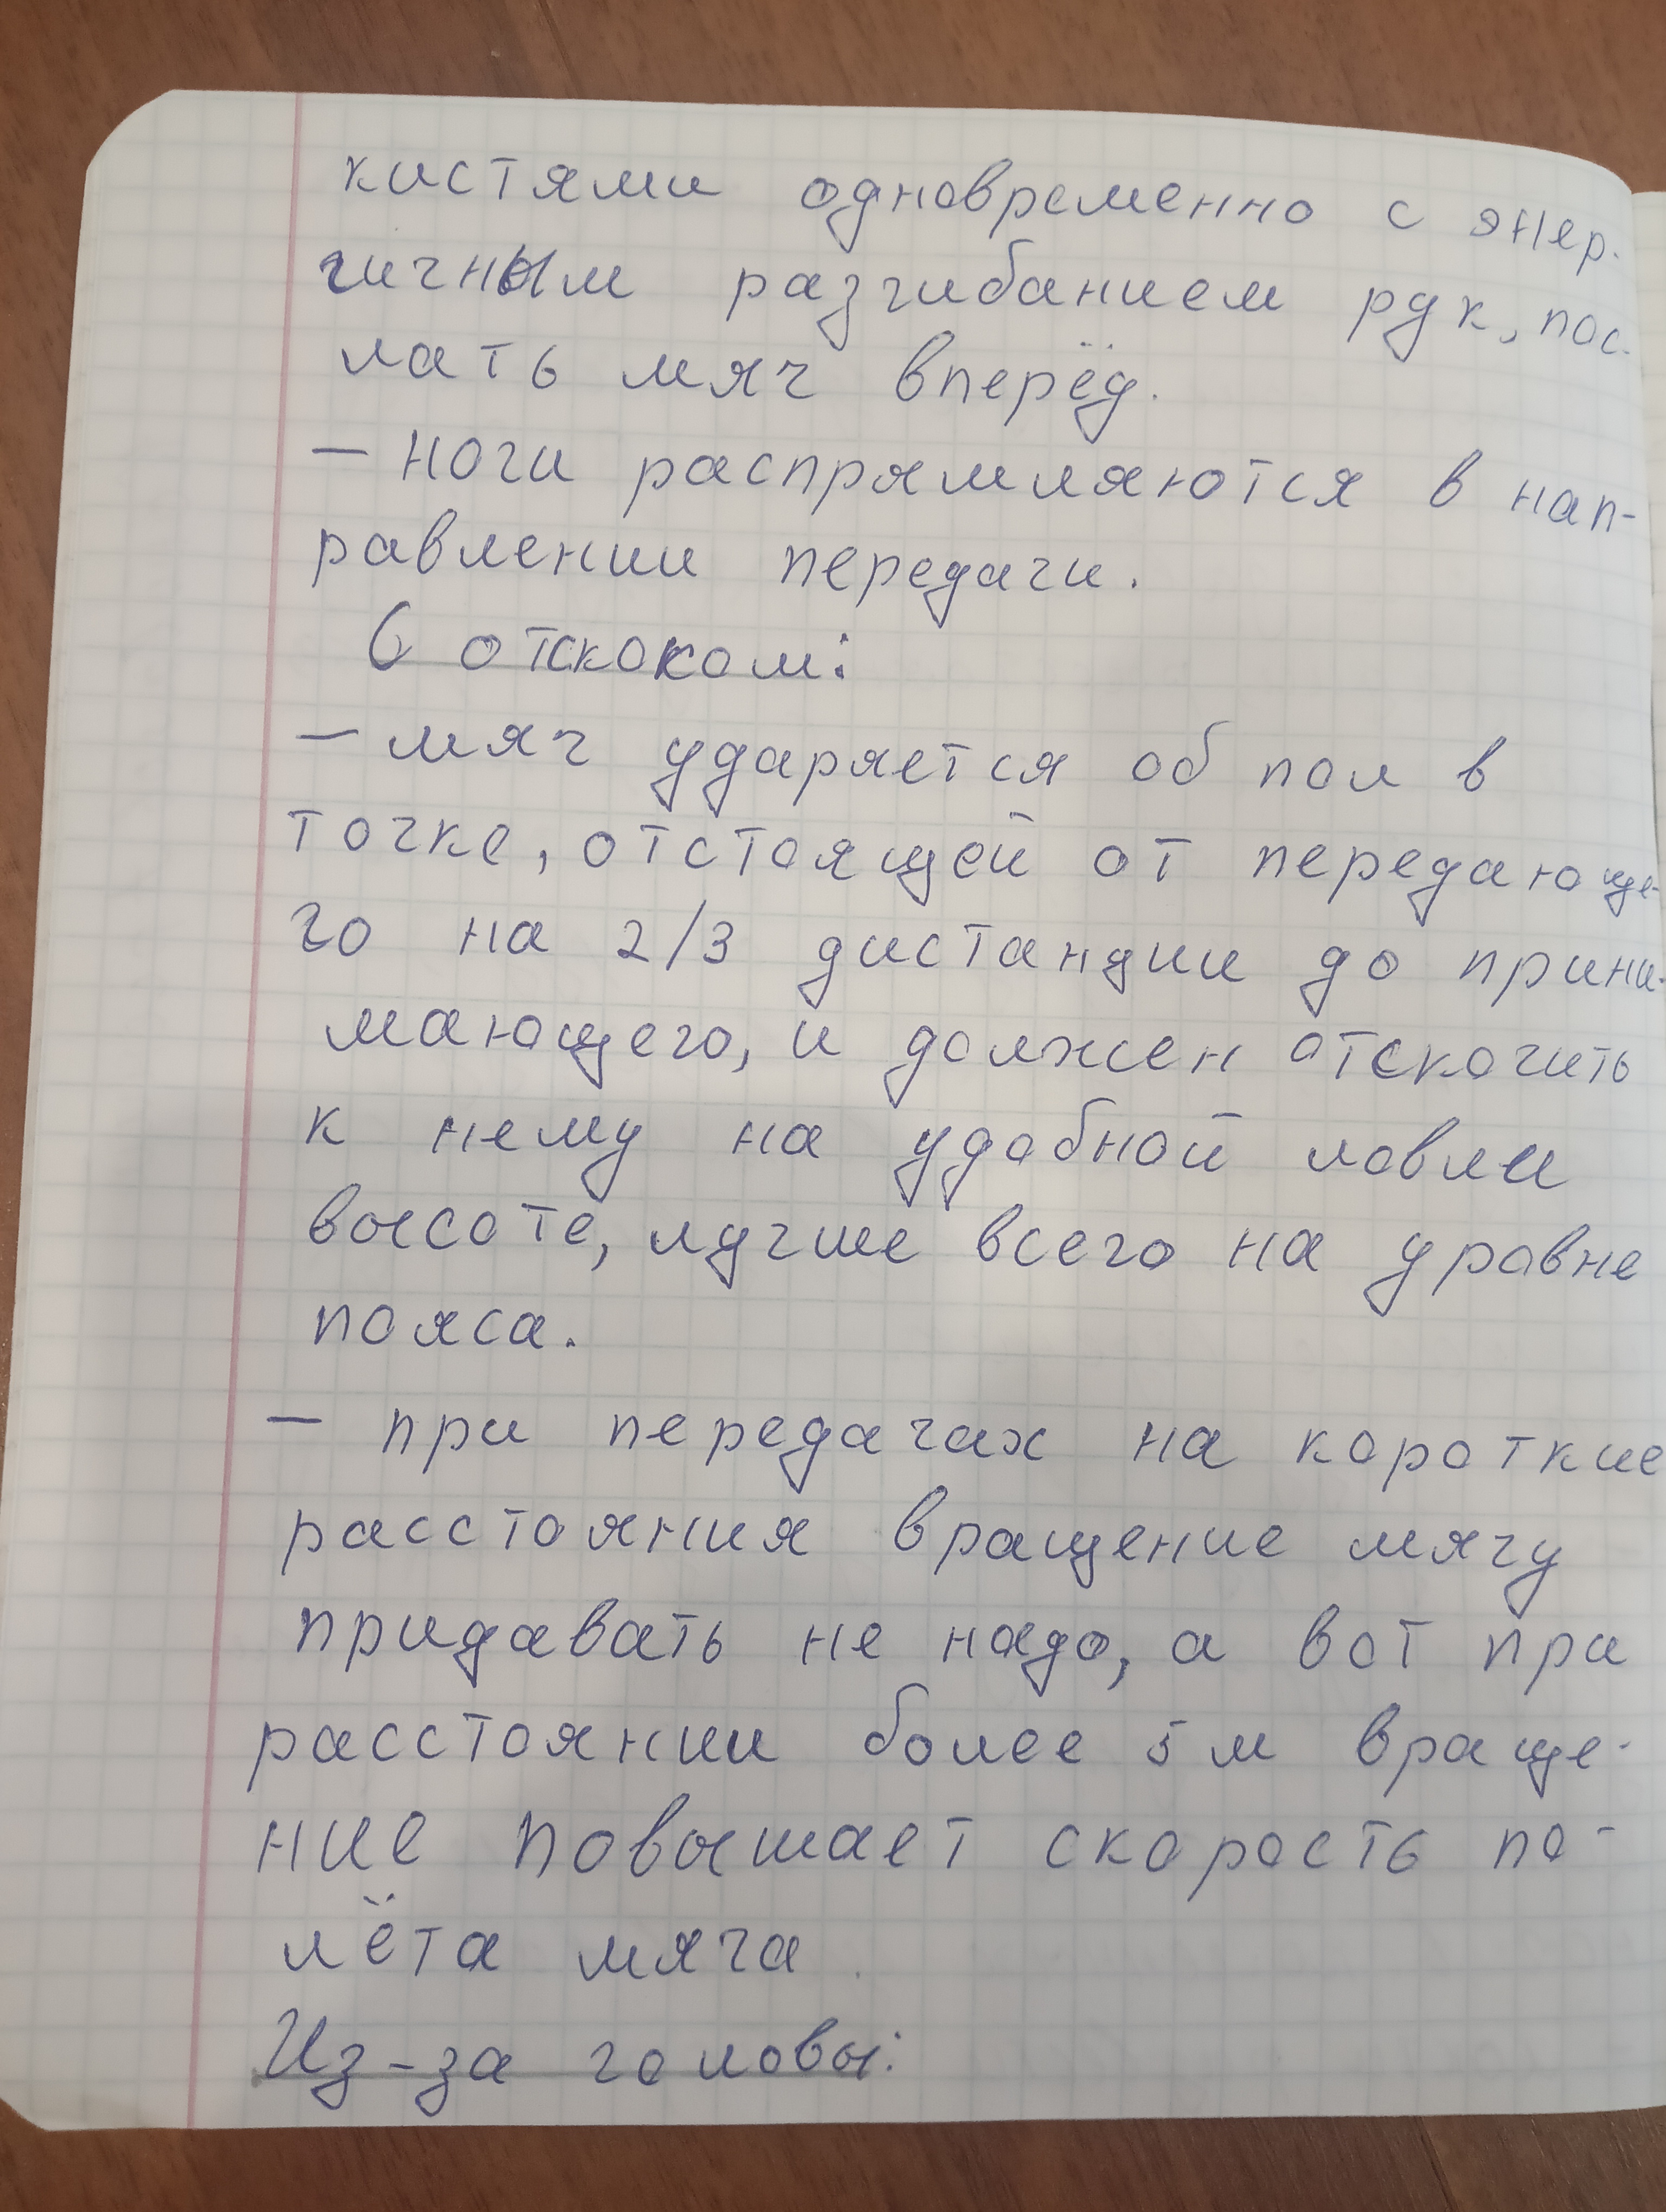 кистями одновременно с энер-
гичным разгибанием рук, пос-
лать мяч вперёд.
– ноги распрямляются в нап-
равлении передачи.
С отскоком:
– мяч ударяется об пол в
точке, отстоящей от передающе-
го на 2/3 дистанции до прини-
мающего, и должен отскочить
к нему на удобной ловли
высоте, лучше всего на уровне
пояса.
– при передачах на короткие
расстояния вращение мячу
придавать не надо, а вот при
расстоянии более 5 м враще-
ние повышает скорость по-
лёта мяча.
Из-за головы: